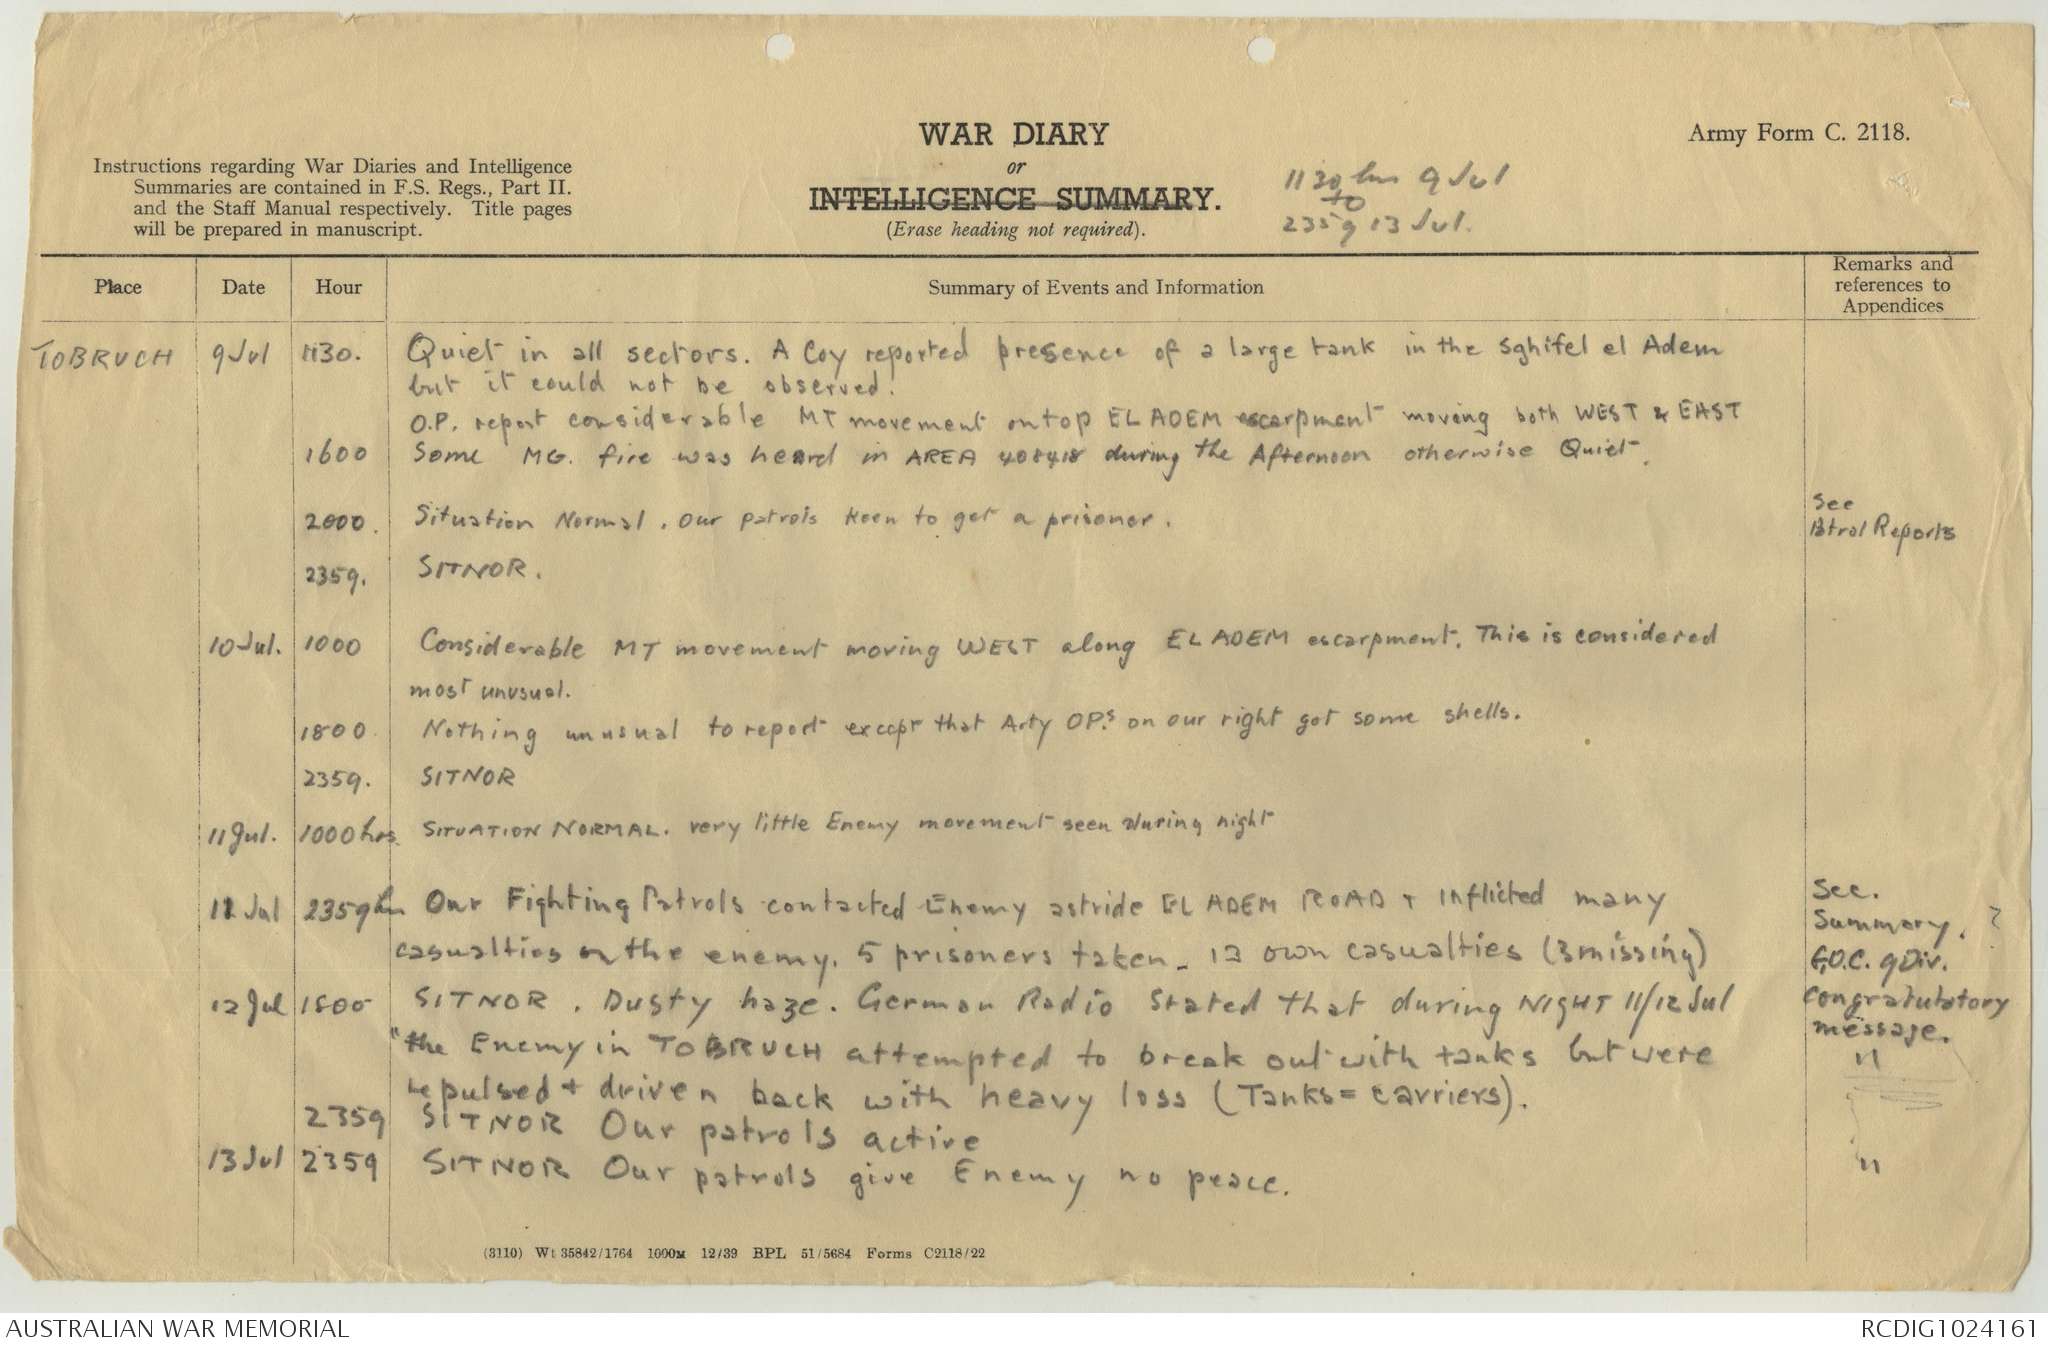 WAR DIARY
or
INTELLIGENCE SUMMARY.
(Erase heading not required).
Army Form C. 2118.
Instructions regarding War Diaries and Intelligence
Summaries are contained in F.S. Regs., Part II.
and the Staff Manual respectively. Title pages
will be prepared in manuscript.
1130 hrs 9 Jul
to
2359 13 Jul.
Place Date Hour Summary of Events and Information Remarks and references to Appendices
TOBRUCH 9 Jul 1130. Quiet in all sectors. A Coy reported presence of a large tank in the Sghifel el Adem
but it could not be observed.
O.P. report considerable MT movement on top EL ADEM escarpment moving both WEST & EAST
1600 Some MG. fire was heard in AREA 408418 during the Afternoon otherwise Quiet.
2000. Situation Normal. Our patrols keen to get a prisoner. See
Ptrol Reports
2359. SITNOR.
10 Jul. 1000 Considerable MT movement moving WEST along EL ADEM escarpment. This is considered
most unusual.
1800 Nothing unusual to report except that Arty OPs on our right got some shells.
2359. SITNOR
11 Jul. 1000 hrs. SITUATION NORMAL. very little Enemy movement seen during night
11 Jul 2359 hrs Our Fighting Patrols contacted Enemy astride EL ADEM ROAD + inflicted many See.
Summary. ?
casualties on the enemy. 5 prisoners taken - 12 own casualties (3 missing) G.O.C. 9 Div.
12 Jul 1800 SITNOR. Dusty haze. German Radio stated that during NIGHT 11/12 Jul congratulatory
message.
"the Enemy in TOBRUCH attempted to break out with tanks but were "
repulsed + driven back with heavy loss (Tanks = carriers).
2359 SITNOR Our patrols active
13 Jul 2359 SITNOR Our patrols give Enemy no peace. "
(3110) Wt 35842/1764 1000M 12/39 BPL 51/5684 Forms C2118/22
AUSTRALIAN WAR MEMORIAL RCDIG1024161